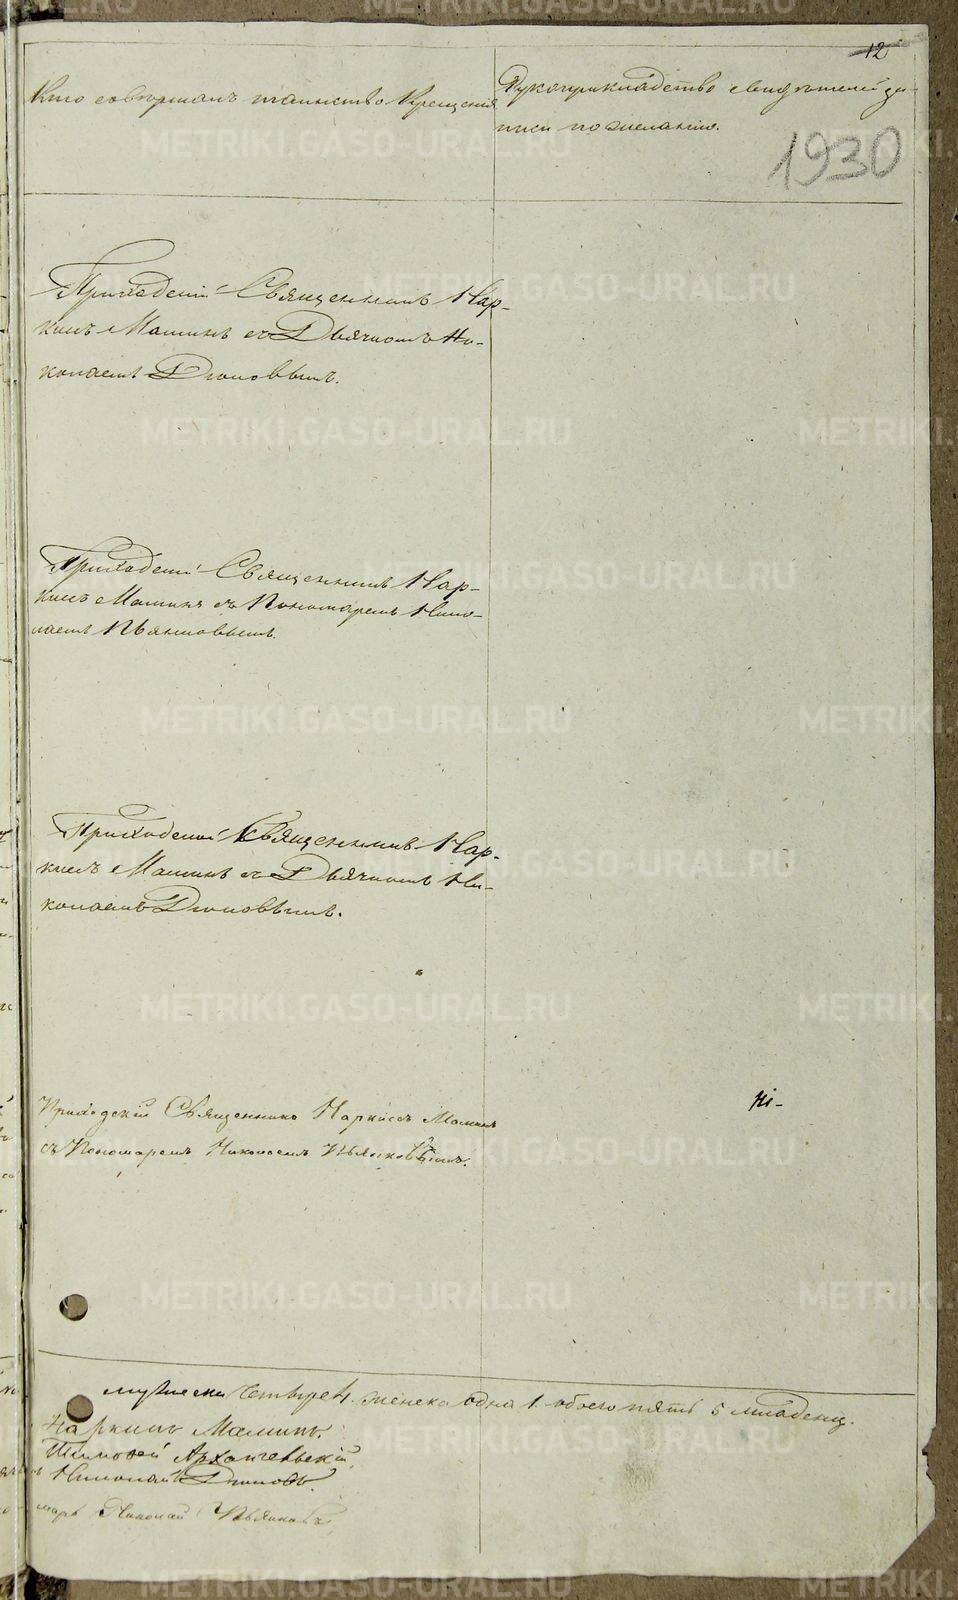 12
Кто совершалъ таинство Крещенія
Рукоприкладство свидѣтелей за-
писи по желанію.
1930
Приходскій Священникъ Нар-
кисъ Маминъ съ Дьячкомъ Ни-
колаемъ Діоновымъ.
Приходскій Священникъ Нар-
кисъ Маминъ съ Пономаремъ Нико-
лаемъ Пьянковымъ.
Приходской Священникъ Нар-
кисъ Маминъ съ Дьячкомъ Ни-
колаемъ Діоновымъ.
Приходскій Священникъ Наркисъ Маминъ
съ Пономаремъ Николаемъ Пьянковымъ.
мужеска четыре 4. женска одна 1. обоего пять 5 младенц.
Наркисъ Маминъ
Тимофей Архангельскій
Николай Діоновъ.
марь Николай Пьянковъ
METRIKI.GASO-URAL.RU